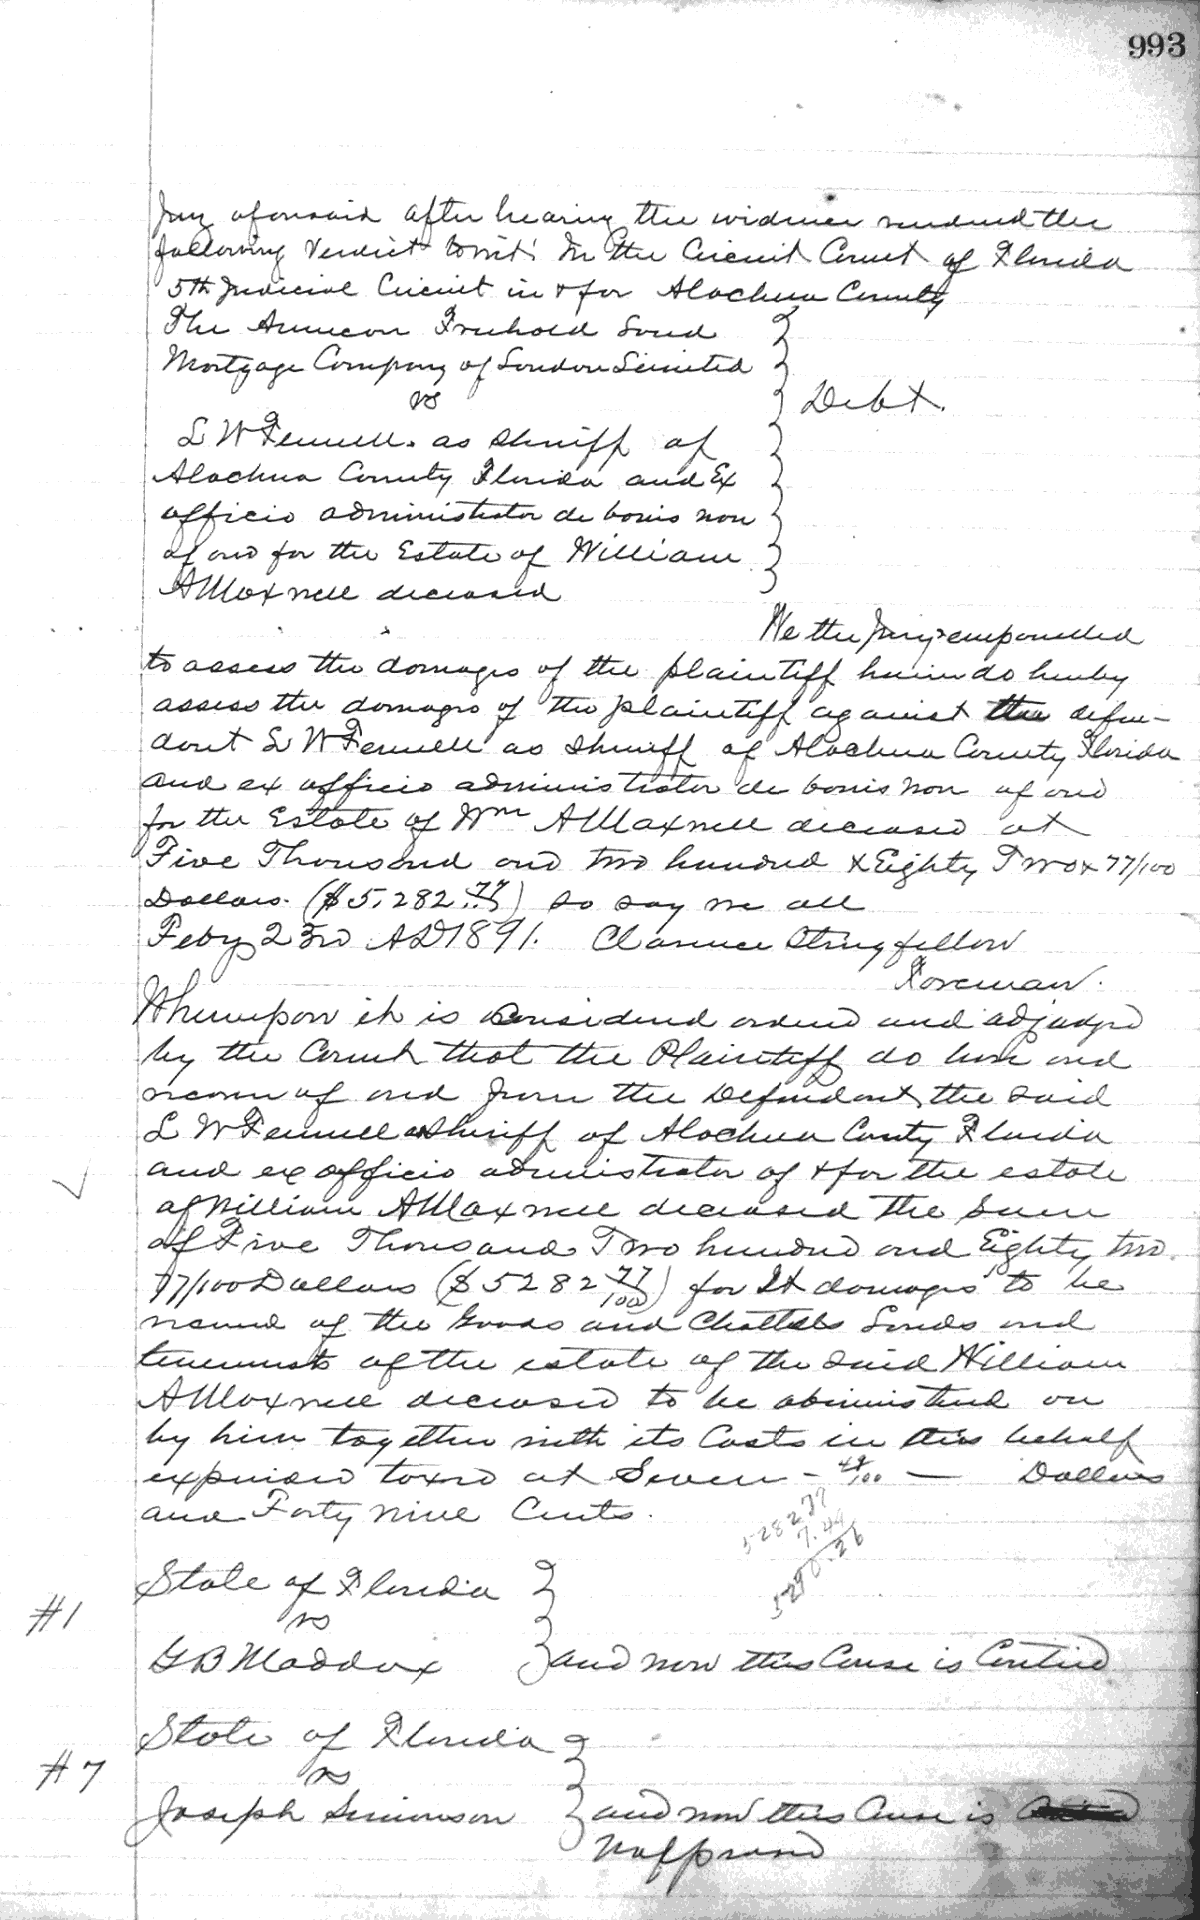 993
Jury aforesaid after hearing the evidence rendered the
following Verdict towit: In the Circuit Court of Florida
5th Judicial Circuit in & for Alachua County
The American Freehold Land
Mortgage Company of London Limited
vs
Debt.
L W Fennell. as Sheriff of
Alachua County Florida and Ex
officio administrator de bonis non
of and for the Estate of William
A Maxwell deceased
We the Jury empanelled
to assess the damages of the plaintiff herein do hereby
assess the damages of the plaintiff against the defen-
dant L W Fennell as Sheriff of Alachua County Florida
and ex officio administrator de bonis non of and
for the Estate of Wm A Maxwell deceased at
Five Thousand and two hundred & Eighty Two & 77/100
Dollars. ($5,282.77) so say we all
Feby 23rd AD 1891. Clarence Stringfellow
Foreman.
Whereupon it is considered ordered and adjudged
by the Court that the Plaintiff do have and
recover of and from the Defendant, the said
L W Fennell as Sheriff of Alachua County Florida
and ex officio administrator of & for the estate
of William A Maxwell deceased the Sum
of Five Thousand Two hundred and Eighty two
77/100 Dollars ($5282 77/100) for It damages to be
recovered of the Goods and Chattels Lands and
tenements of the estate of the said William
A Maxwell deceased to be administered on
by him together with its Costs in this behalf
expended taxed at Seven - 49/100 — Dollars
and Forty nine Cents.
5282 77
7.49
5290.26
State of Florida
#1
vs
G B Maddox and now this Cause is Contied
State of Florida
#7
vs
Joseph Simonson and now this Cause is
Nol prossed